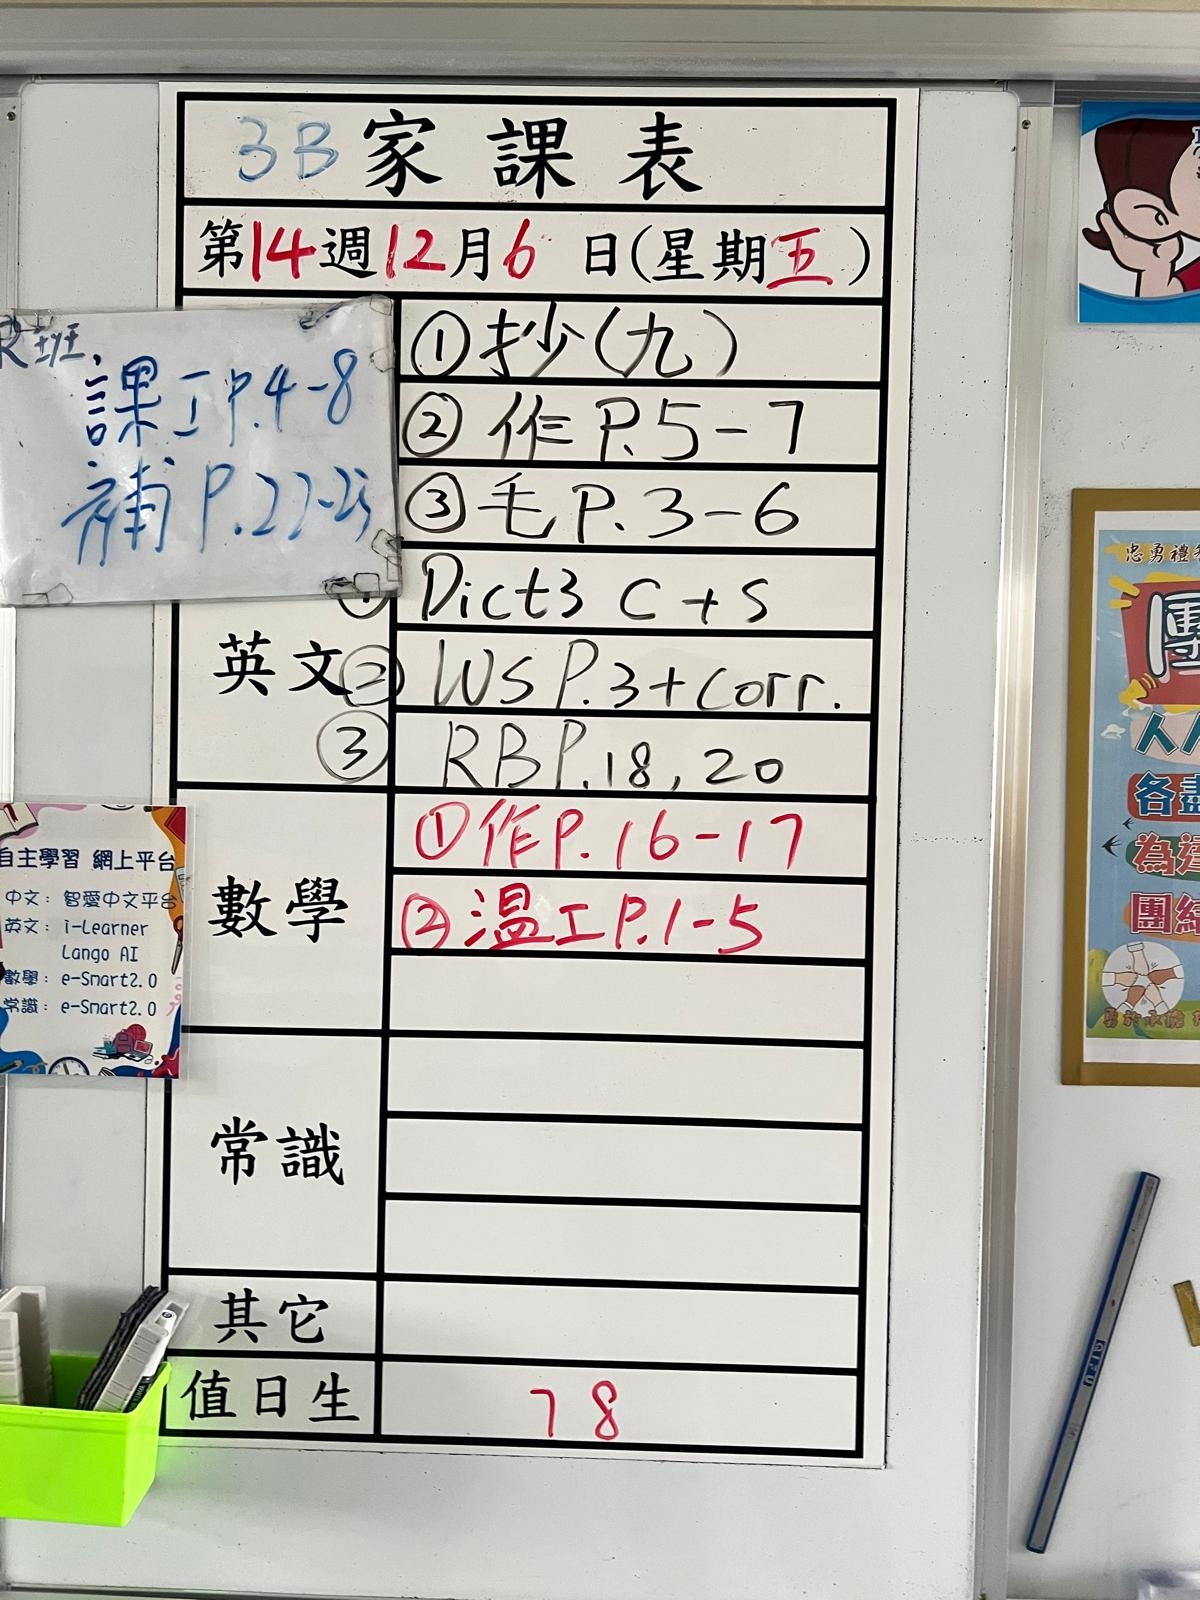 3B 家課表
第14週12月6日(星期五)
R班.
課工P.4-8
補P.22-23
①抄(九)
②作P.5-7
③毛P.3-6
英文
① Dict3 C+S
② WS P.3+corr.
③ RB P.18,20
數學
①作P.16-17
②溫工P.1-5
常識
其它
值日生
7 8
自主學習 網上平台
中文：智愛中文平台
英文：i-Learner
Lango AI
數學：e-Smart2.0
常識：e-Smart2.0
忠勇禮
團
人人
各盡
為
團結